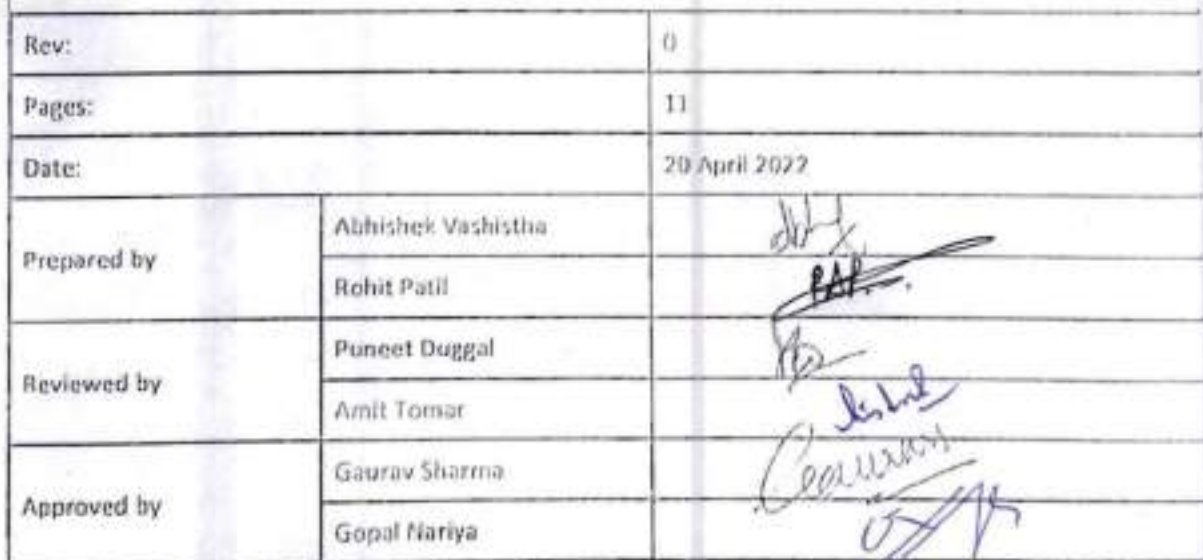 Rev: 0
Pages: 11
Date: 20 April 2022
Prepared by
Abhishek Vashistha
Rohit Patil
PAP
Reviewed by
Puneet Duggal
Amit Tomar
Approved by
Gaurav Sharma
Gaurav
Gopal Nariya